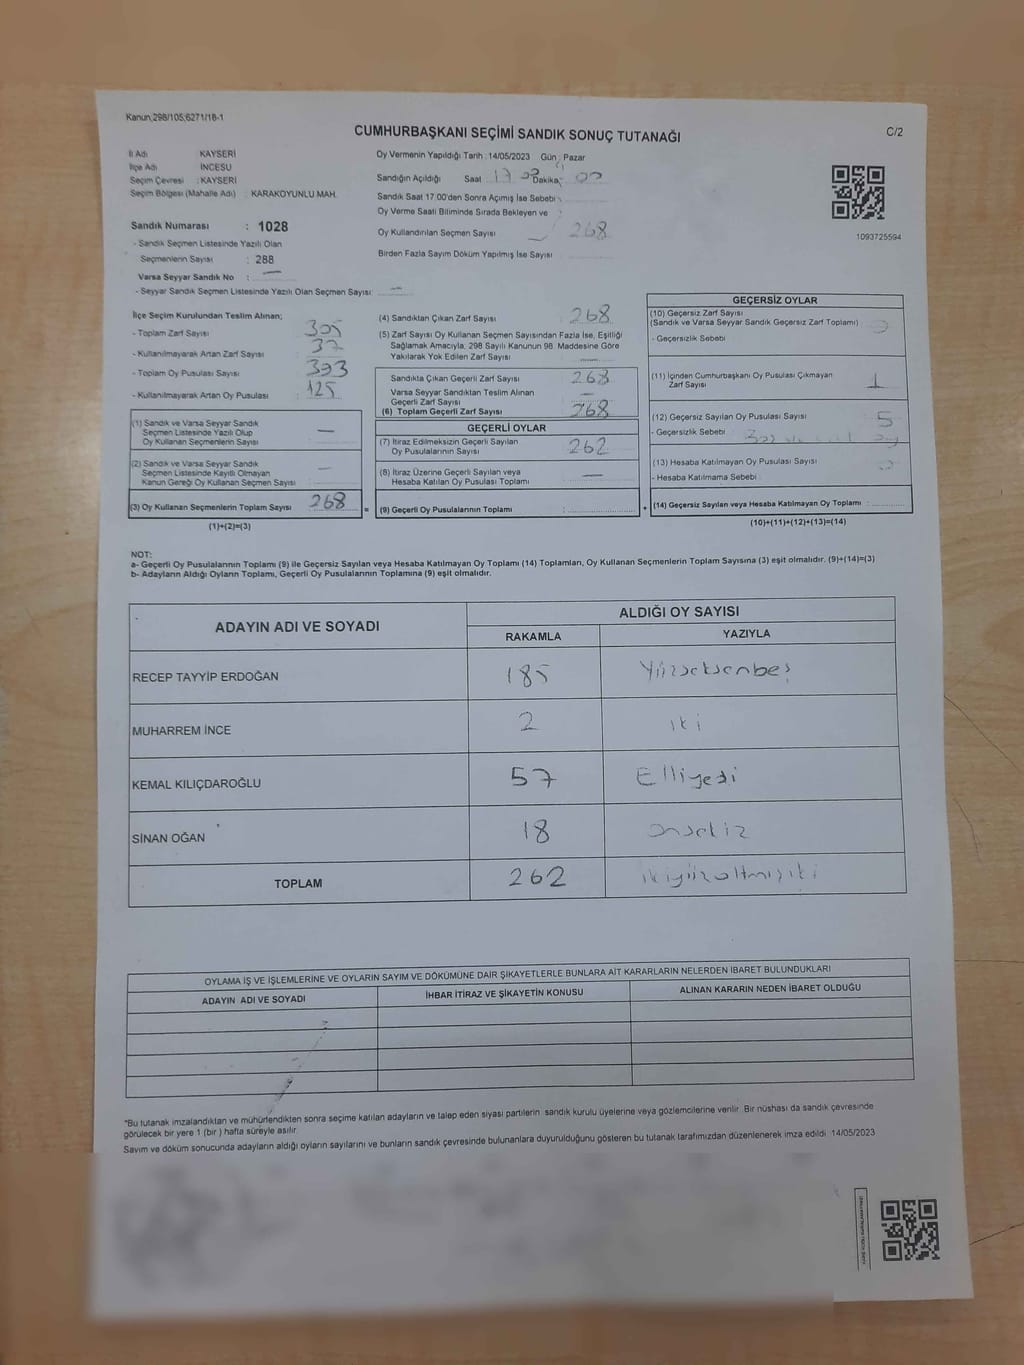 Kanun;298/105;6271/18-1
C/2
CUMHURBAŞKANI SEÇİMİ SANDIK SONUÇ TUTANAĞI
İl Adı KAYSERİ
İlçe Adı İNCESU
Seçim Çevresi : KAYSERİ
Seçim Bölgesi (Mahalle Adı) : KARAKOYUNLU MAH.
Sandık Numarası : 1028
- Sandık Seçmen Listesinde Yazılı Olan
Seçmenlerin Sayısı : 288
Varsa Seyyar Sandık No : —
- Seyyar Sandık Seçmen Listesinde Yazılı Olan Seçmen Sayısı: —
Oy Vermenin Yapıldığı Tarih :14/05/2023 Gün: Pazar
Sandığın Açıldığı Saat 17 Dakika: 00
Sandık Saat 17:00'den Sonra Açımış İse Sebebi
Oy Verme Saati Bitiminde Sırada Bekleyen ve
Oy Kullandırılan Seçmen Sayısı 268
Birden Fazla Sayım Döküm Yapılmış İse Sayısı
1093725594
İlçe Seçim Kurulundan Teslim Alınan;
- Toplam Zarf Sayısı 305
- Kullanılmayarak Artan Zarf Sayısı 37
- Toplam Oy Pusulası Sayısı 393
- Kullanılmayarak Artan Oy Pusulası 125
(1) Sandık ve Varsa Seyyar Sandık
Seçmen Listesinde Yazılı Olup
Oy Kullanan Seçmenlerin Sayısı : —
(2) Sandık ve Varsa Seyyar Sandık
Seçmen Listesinde Kayıtlı Olmayan
Kanun Gereği Oy Kullanan Seçmen Sayısı : —
(3) Oy Kullanan Seçmenlerin Toplam Sayısı 268
(1)+(2)=(3)
(4) Sandıktan Çıkan Zarf Sayısı 268
(5) Zarf Sayısı Oy Kullanan Seçmen Sayısından Fazla İse, Eşitliği
Sağlamak Amacıyla, 298 Sayılı Kanunun 98. Maddesine Göre
Yakılarak Yok Edilen Zarf Sayısı
Sandıkta Çıkan Geçerli Zarf Sayısı 268
Varsa Seyyar Sandıktan Teslim Alınan
Geçerli Zarf Sayısı —
(6) Toplam Geçerli Zarf Sayısı 268
GEÇERLİ OYLAR
(7) İtiraz Edilmeksizin Geçerli Sayılan
Oy Pusulalarının Sayısı 262
(8) İtiraz Üzerine Geçerli Sayılan veya
Hesaba Katılan Oy Pusulası Toplamı : —
(9) Geçerli Oy Pusulalarının Toplamı :
GEÇERSİZ OYLAR
(10) Geçersiz Zarf Sayısı
(Sandık ve Varsa Seyyar Sandık Geçersiz Zarf Toplamı) :
- Geçersizlik Sebebi
(11) İçinden Cumhurbaşkanı Oy Pusulası Çıkmayan
Zarf Sayısı 1
(12) Geçersiz Sayılan Oy Pusulası Sayısı 5
- Geçersizlik Sebebi :
(13) Hesaba Katılmayan Oy Pusulası Sayısı
- Hesaba Katılmama Sebebi
(14) Geçersiz Sayılan veya Hesaba Katılmayan Oy Toplamı :
(10)+(11)+(12)+(13)=(14)
NOT:
a- Geçerli Oy Pusulalarının Toplamı (9) ile Geçersiz Sayılan veya Hesaba Katılmayan Oy Toplamı (14) Toplamları, Oy Kullanan Seçmenlerin Toplam Sayısına (3) eşit olmalıdır. (9)+(14)=(3)
b- Adayların Aldığı Oyların Toplamı, Geçerli Oy Pusulalarının Toplamına (9) eşit olmalıdır.
ADAYIN ADI VE SOYADI
ALDIĞI OY SAYISI
RAKAMLA YAZIYLA
RECEP TAYYİP ERDOĞAN 185 Yüzseksenbeş
MUHARREM İNCE 2 iki
KEMAL KILIÇDAROĞLU 57 Elliyedi
SİNAN OĞAN 18 onsekiz
TOPLAM 262 ikiyüzaltmışiki
OYLAMA İŞ VE İŞLEMLERİNE VE OYLARIN SAYIM VE DÖKÜMÜNE DAİR ŞİKAYETLERLE BUNLARA AİT KARARLARIN NELERDEN İBARET BULUNDUKLARI
ADAYIN ADI VE SOYADI İHBAR İTİRAZ VE ŞİKAYETİN KONUSU ALINAN KARARIN NEDEN İBARET OLDUĞU
*Bu tutanak imzalandıktan ve mühürlendikten sonra seçime katılan adayların ve talep eden siyasi partilerin sandık kurulu üyelerine veya gözlemcilerine verilir. Bir nüshası da sandık çevresinde
görülecek bir yere 1 (bir ) hafta süreyle asılır.
Sayım ve döküm sonucunda adayların aldığı oyların sayılarını ve bunların sandık çevresinde bulunanlara duyurulduğunu gösteren bu tutanak tarafımızdan düzenlenerek imza edildi. 14/05/2023